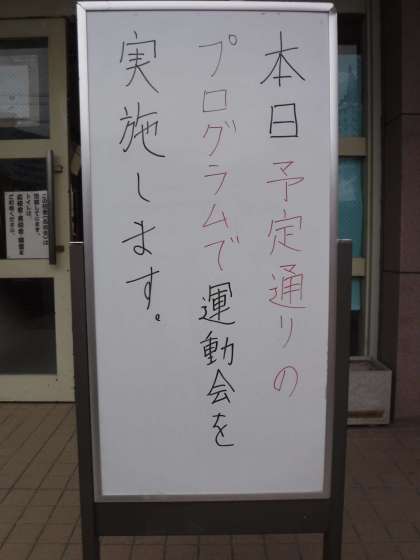 本日予定通りの
プログラムで運動会を
実施します。
トイレは